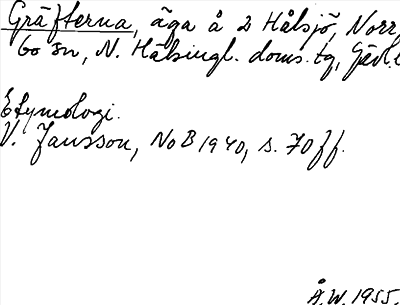 Gräfterna, äga å 2 Hålsjö, Norr
bo sn, N. Hälsingl. doms. tg, Gävl. l
Etymologi.
V. Jansson, NoB 1940, s. 70 ff.
Å.W. 1955.